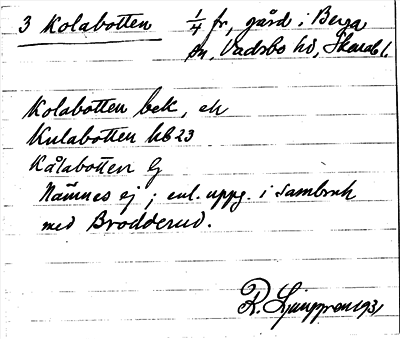 3 Kolabotten 1/4 fr, gård i Berga
sn, Vadsbo hd, Skarab l.
Kolabotten bek, ek
Kulabotten hb 23
Kålabotten G
Nämnes ej; enl. uppg. i sambruk
med Brodderud.
R. Ljunggren 1931